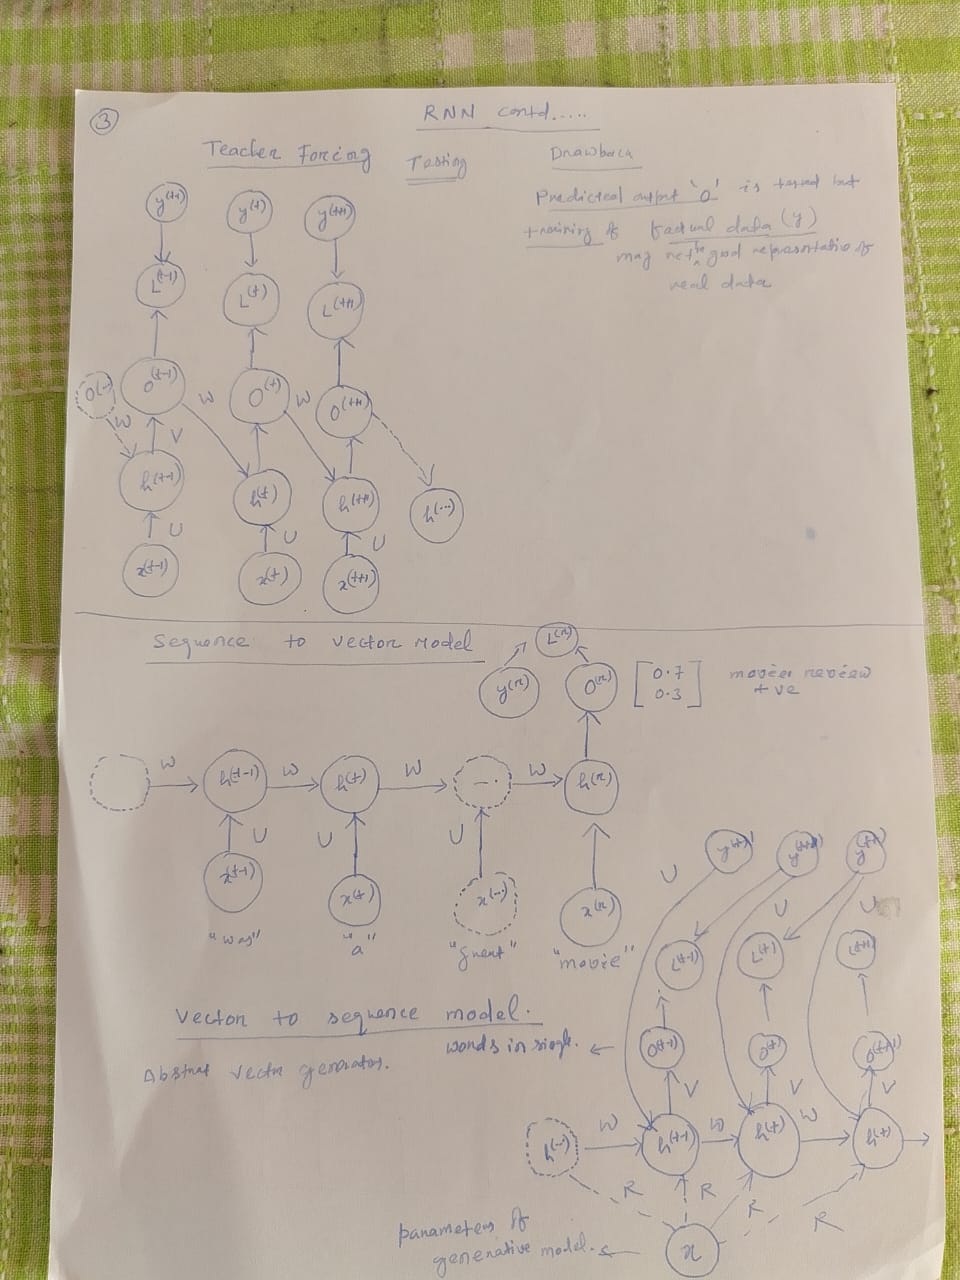 3
RNN contd.....
Teacher Forcing
Testing
Drawback
Predicted output 'O' is tested but
training of factual data (y)
may not be good representatio of
real data
y(t-1) y(t) y(t+1)
L(t-1) L(t) L(t+1)
O(...) O(t-1) W O(t) W O(t+1)
W V
h(t-1) h(t) h(t+1) h(...)
U U U
x(t-1) x(t) x(t+1)
Sequence to vector model
L(n)
y(n) O(n) [0.7 0.3] movie review
+ve
W h(t-1) W h(t) W ... W h(n)
U U U
x(t-1) x(t) x(...) x(n)
"was" "a" "great" "movie"
Vector to sequence model.
Abstract vector generator.
words in single.
U U U
L(t-1) L(t) L(t+1)
O(t-1) O(t) O(t+1)
V V V
h(...) W h(t-1) W h(t) W h(t)
R R R R
x
parameters of
generative model.